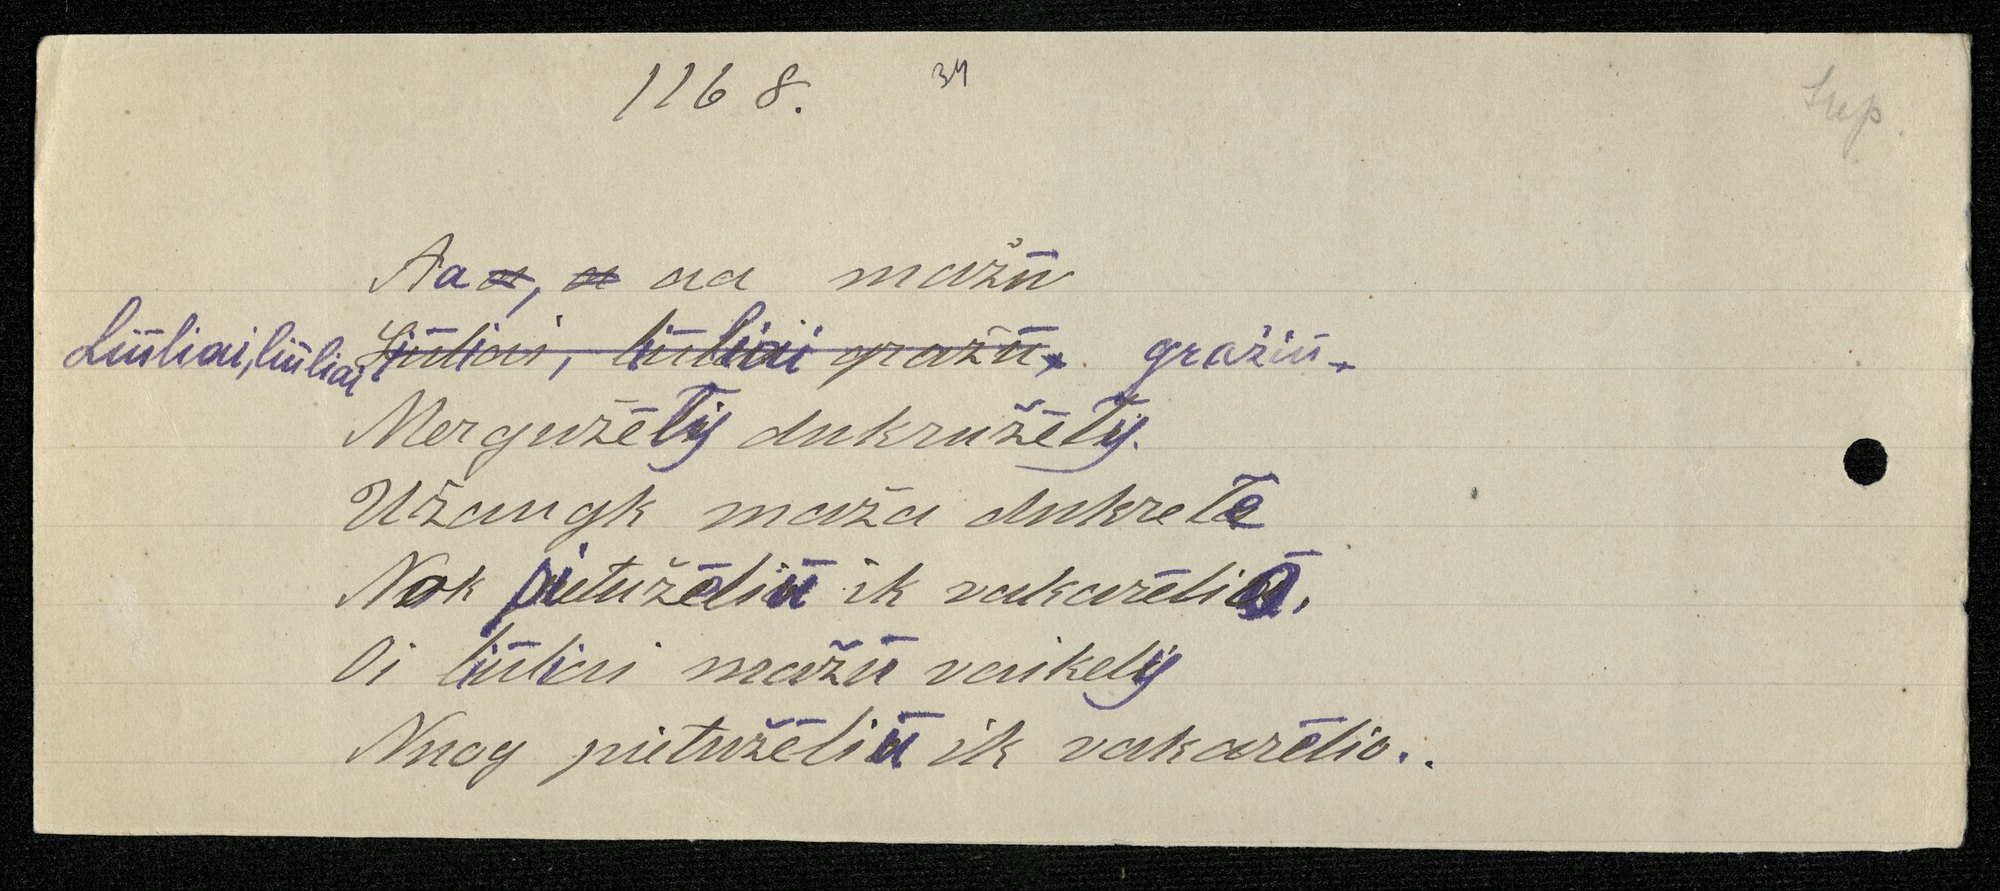 1168. 34
Sup.
Aa a, a aa mažū
Liūliai, liūliai Liūliai, liūliai gražū, gražiū,
Mergužėlў dukružėlў.
Užaugk maža dukrele
Nok pietužėliū ik vakarėlio.
Oi liūliai mažū vaikelў
Nuog pietužėliū ik vakarėlio..